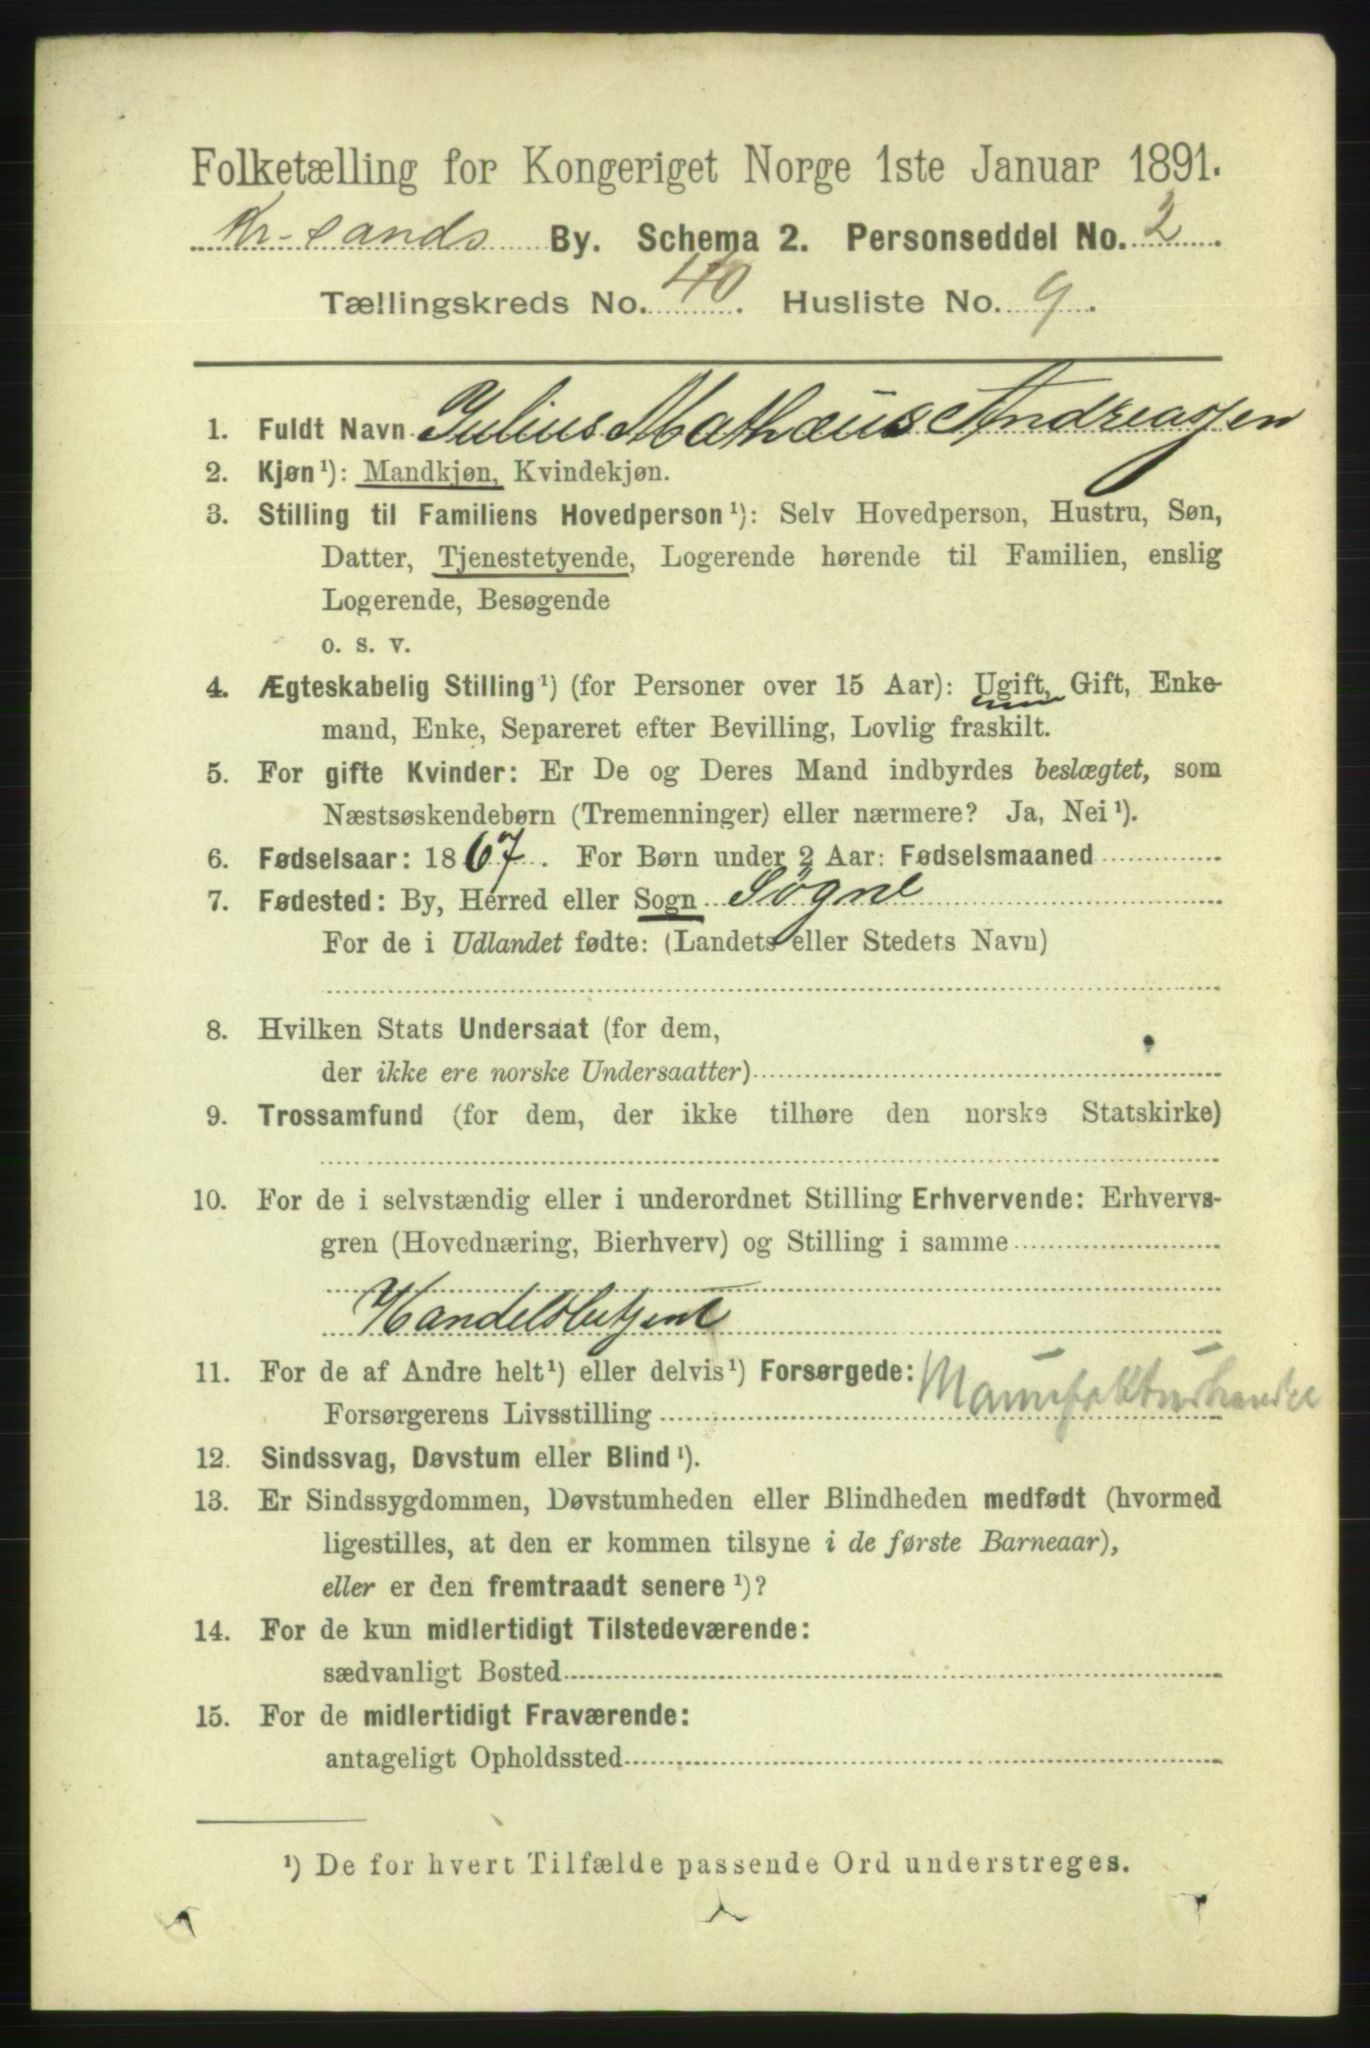 Folketælling for Kongeriget Norge 1ste Januar 1891.
Kr-sands By. Schema 2. Personseddel No. 2
Tællingskreds No. 40. Husliste No. 9.
1. Fuldt Navn Julius Mathæus Andreassen
2. Kjøn¹): Mandkjøn, Kvindekjøn.
3. Stilling til Familiens Hovedperson¹): Selv Hovedperson, Hustru, Søn,
Datter, Tjenestetyende, Logerende hørende til Familien, enslig
Logerende, Besøgende
o. s. v.
4. Ægteskabelig Stilling¹) (for Personer over 15 Aar): Ugift, Gift, Enke-
mand, Enke, Separeret efter Bevilling, Lovlig fraskilt.
5. For gifte Kvinder: Er De og Deres Mand indbyrdes beslægtet, som
Næstsøskendebørn (Tremenninger) eller nærmere? Ja, Nei¹).
6. Fødselsaar: 1867. For Børn under 2 Aar: Fødselsmaaned
7. Fødested: By, Herred eller Sogn Sögne
For de i Udlandet fødte: (Landets eller Stedets Navn)
8. Hvilken Stats Undersaat (for dem,
der ikke ere norske Undersaatter)
9. Trossamfund (for dem, der ikke tilhøre den norske Statskirke)
10. For de i selvstændig eller i underordnet Stilling Erhvervende: Erhvervs-
gren (Hovednæring, Bierhverv) og Stilling i samme
Handelsbetjent
11. For de af Andre helt¹) eller delvis¹) Forsørgede: Manufakturhandel
Forsørgerens Livsstilling
12. Sindssvag, Døvstum eller Blind¹).
13. Er Sindssygdommen, Døvstumheden eller Blindheden medfødt (hvormed
ligestilles, at den er kommen tilsyne i de første Barneaar),
eller er den fremtraadt senere¹)?
14. For de kun midlertidigt Tilstedeværende:
sædvanligt Bosted
15. For de midlertidigt Fraværende:
antageligt Opholdssted
¹) De for hvert Tilfælde passende Ord understreges.